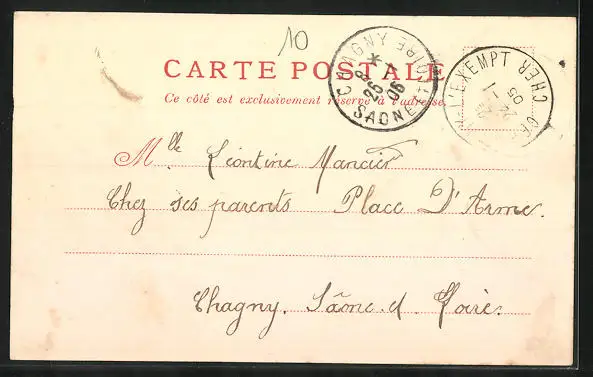 10
CARTE POSTALE
Ce côté est exclusivement réservé à l'adresse.
CHAGNY SAONE
26
06
L'EXEMPT CHER
05
Mlle Léontine Mancier
Chez ses parents Place D'Arme.
Chagny. Saône. et. Loire.